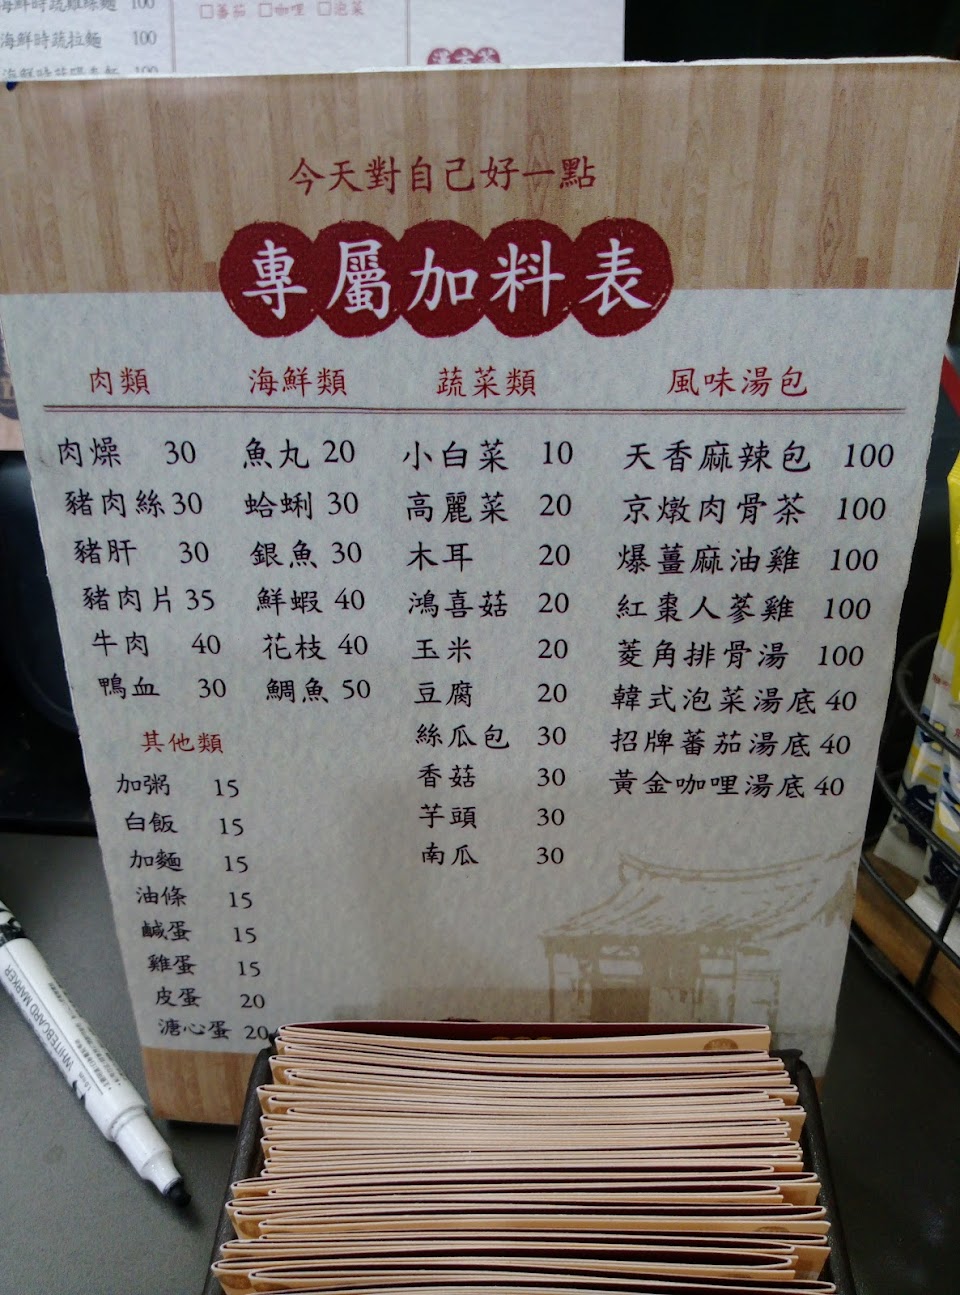 海鮮時蔬拉麵 100
□番茄 □咖哩 □泡菜
今天對自己好一點
專屬加料表
肉類
肉燥 30
豬肉絲 30
豬肝 30
豬肉片 35
牛肉 40
鴨血 30
其他類
加粥 15
白飯 15
加麵 15
油條 15
鹹蛋 15
雞蛋 15
皮蛋 20
溏心蛋 20
海鮮類
魚丸 20
蛤蜊 30
銀魚 30
鮮蝦 40
花枝 40
鯛魚 50
蔬菜類
小白菜 10
高麗菜 20
木耳 20
鴻喜菇 20
玉米 20
豆腐 20
絲瓜包 30
香菇 30
芋頭 30
南瓜 30
風味湯包
天香麻辣包 100
京燉肉骨茶 100
爆薑麻油雞 100
紅棗人蔘雞 100
菱角排骨湯 100
韓式泡菜湯底 40
招牌蕃茄湯底 40
黃金咖哩湯底 40
WHITEBOARD MARKER